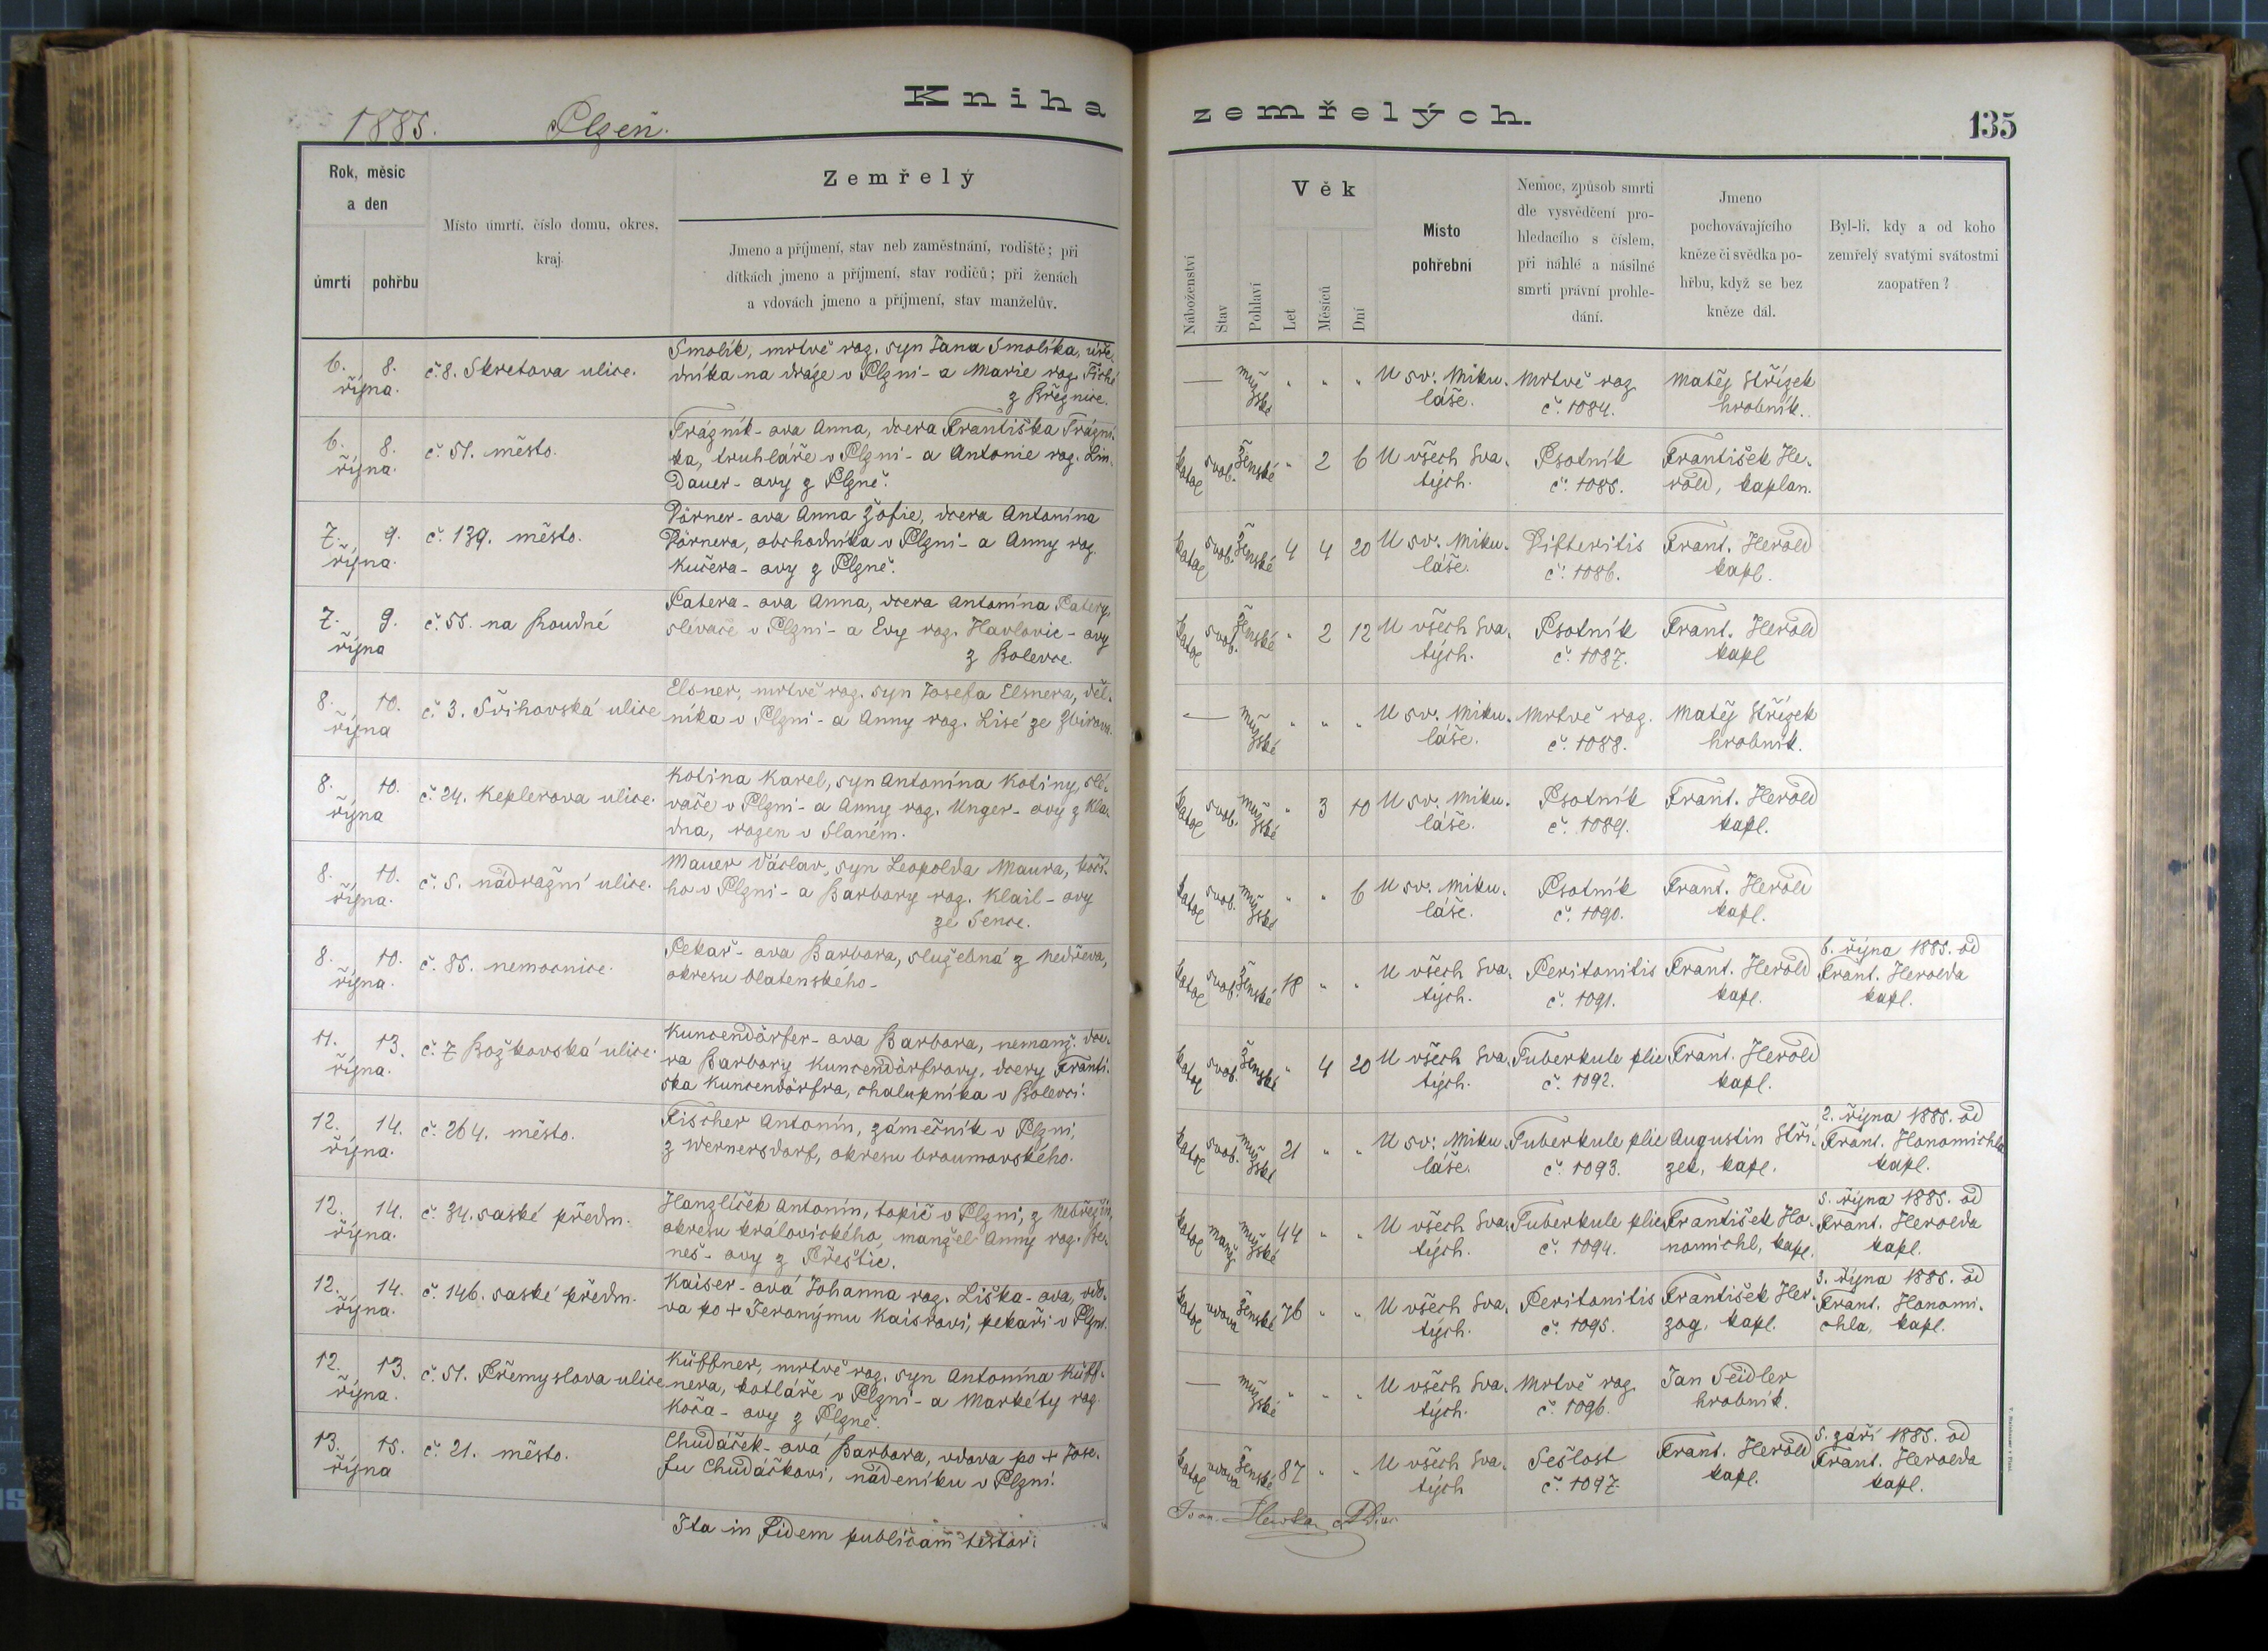 Kniha zemřelých.
1885. Plzeň.
135
Rok, měsíc
a den
úmrtí
pohřbu
Místo úmrtí, číslo domu, okres,
kraj.
Zemřelý
Jmeno a příjmení, stav neb zaměstnání, rodiště; při
dítkách jmeno a příjmení, stav rodičů; při ženách
a vdovách jmeno a příjmení, stav manželův.
Náboženství
Stav
Pohlaví
Věk
Let
Měsíců
Dní
Místo
pohřební
Nemoc, způsob smrti
dle vysvědčení pro-
hledacího s číslem,
při náhlé a násilné
smrti právní prohle-
dání.
Jmeno
pochovávajícího
kněze či svědka po-
hřbu, když se bez
kněze dál.
Byl-li, kdy a od koho
zemřelý svatými svátostmi
zaopatřen?
6. 8.
října.
č. 8. Skretova ulice.
Smolík, mrtvě roz. syn Jana Smolíka, úře-
dníka na dráze v Plzni - a Marie roz. Tiché
z Březnice.
— mužské " " "
U sv. Miku-
láše.
Mrtvě roz.
č. 1084.
Matěj Střízek
hrobník.
6. 8.
října.
č. 51. město.
Trázník-ova Anna, dcera Františka Trázní-
ka, truhláře v Plzni - a Antonie roz. Lin-
dauer-ovy z Plzně.
katol svob. ženské " 2 6
U všech Sva-
tých.
Psotník
č. 1085.
František He-
rold, kaplan.
7. 9.
října.
č. 139. město.
Dörner-ova Anna Žofie, dcera Antonína
Dörnera, obchodníka v Plzni - a Anny roz.
Kučera-ovy z Plzně.
katol svob. ženské 4 4 20
U sv. Miku-
láše.
Difteritis
č. 1086.
Frant. Herold
kapl.
7. 9.
října
č. 55. na Roudné
Patera-ova Anna, dcera Antonína Patery,
slévače v Plzni - a Evy roz. Havlovic-ovy
z Bolevce.
katol svob. ženské " 2 12
U všech Sva-
tých.
Psotník
č. 1087.
Frant. Herold
kapl
8. 10.
října
č. 3. Švihovská ulice
Elsner, mrtvě roz. syn Josefa Elsnera, děl-
níka v Plzni - a Anny roz. Lisé ze Zbirova.
— mužské " " "
U sv. Miku-
láše.
Mrtvě roz.
č. 1088.
Matěj Střízek
hrobník.
8. 10.
října
č. 24. Keplerova ulice.
Kotina Karel, syn Antonína Kotiny, slé-
vače v Plzni - a Anny roz. Unger-ovy z Kla-
dna, rozen v Slaném.
katol svob. mužské " 3 10
U sv. Miku-
láše.
Psotník
č. 1089.
Frant. Herold
kapl.
8. 10.
října.
č. 5. nádražní ulice.
Mauer Václav, syn Leopolda Maura, kočí-
ho v Plzni - a Barbory roz. Klail-ovy
ze Sence.
katol svob. mužské " " 6
U sv. Miku-
láše.
Psotník
č. 1090.
Frant. Herold
kapl.
8. 10.
října.
č. 85. nemocnice.
Pekař-ova Barbora, služebná z Nedřeva,
okresu blatenského-
katol svob. ženské 18 " "
U všech Sva-
tých.
Peritonitis
č. 1091.
Frant. Herold
kapl.
6. října 1885. od
Frant. Herolda
kapl.
11. 13.
října.
č. 7 Božkovská ulice.
Kuncendörfer-ova Barbora, nemanž. dce-
ra Barbory Kuncendörfrovy, dcery Franti-
ška Kuncendörfra, chalupníka v Bolevci.
katol svob. ženské " 4 20
U všech Sva-
tých.
Tuberkule plic
č. 1092.
Frant. Herold
kapl.
12. 14.
října.
č. 264. město.
Fischer Antonín, zámečník v Plzni,
z Wernersdorf, okresu broumovského.
katol svob. mužské 21 " "
U sv. Miku-
láše.
Tuberkule plic
č. 1093.
Augustin Stří-
zek, kapl.
2. října 1885. od
Frant. Honomichla
kapl.
12. 14.
října.
č. 34. saské předm.
Hanzlíček Antonín, topič v Plzni, z Nebřezin,
okresu královického, manžel Anny roz. Be-
neš-ovy z Přeštic.
katol manž. mužské 44 " "
U všech Sva-
tých.
Tuberkule plic
č. 1094.
František Ho-
nomichl, kapl.
5. října 1885. od
Frant. Herolda
kapl.
12. 14.
října.
č. 146. saské předm.
Kaiser-ová Johanna roz. Liška-ova, vdo-
va po + Jeronýmu Kaisrovi, pekaři v Plzni.
katol vdova ženské 76 " "
U všech Sva-
tých.
Peritonitis
č. 1095.
František Her-
zog, kapl.
3. října 1885. od
Frant. Honomi-
chla, kapl.
12. 13.
října.
č. 51. Přemyslova ulice
Küffner, mrtvě roz. syn Antonína Küff-
nera, kotláře v Plzni - a Markéty roz.
Koča-ovy z Plzně.
— mužské " " "
U všech Sva-
tých.
Mrtvě roz.
č. 1096.
Jan Seidler
hrobník.
13. 15.
října
č. 21. město.
Chudáček-ová Barbora, vdova po + Jose-
fu Chudáčkovi, nádeníku v Plzni.
katol vdova ženské 87 " "
U všech Sva-
tých
Sešlost
č. 1097.
Frant. Herold
kapl.
5. září 1885. od
Frant. Herolda
kapl.
Ita in Fidem publicam testor: